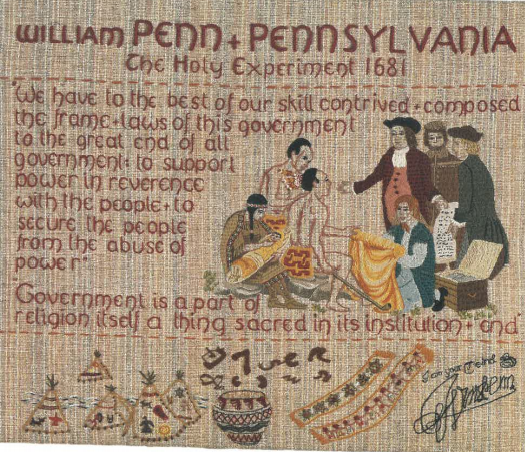 WILLIAM PENN + PENNSYLVANIA
The Holy Experiment 1681
"We have to the best of our skill contrived + composed
the frame + laws of this government
to the great end of all
government: to support
power in reverence
with the people + to
secure the people
from the abuse of
power"
Government is a part of
religion itself a thing sacred in its institution + end
I am your Friend
Wm Penn